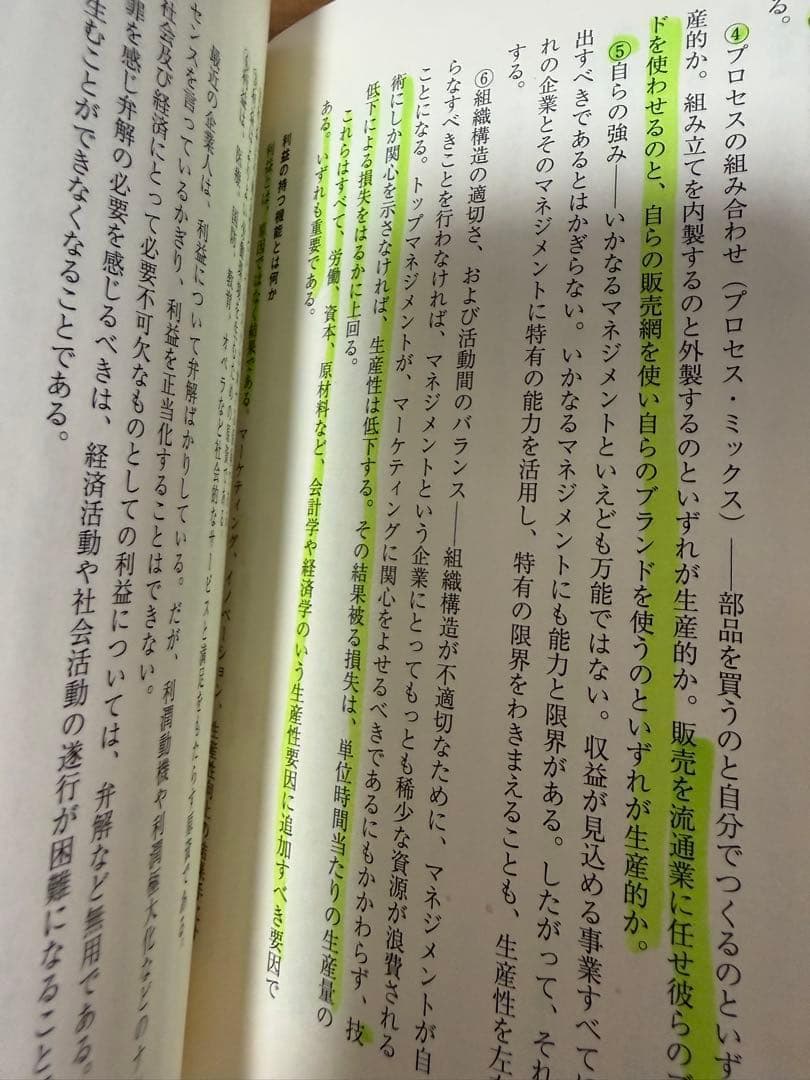 る。
④プロセスの組み合わせ（プロセス・ミックス）――部品を買うのと自分でつくるのといず
産的か。組み立てを内製するのと外製するのといずれが生産的か。販売を流通業に任せ彼らのブ
ドを使わせるのと、自らの販売網を使い自らのブランドを使うのといずれが生産的か。
⑤自らの強み――いかなるマネジメントといえども万能ではない。収益が見込める事業すべて
出すべきであるとはかぎらない。いかなるマネジメントにも能力と限界がある。したがって、それ
れの企業とそのマネジメントに特有の能力を活用し、特有の限界をわきまえることも、生産性を左
する。
⑥組織構造の適切さ、および活動間のバランス――組織構造が不適切なために、マネジメントが自
らなすべきことを行わなければ、マネジメントという企業にとってもっとも稀少な資源が浪費される
ことになる。トップマネジメントが、マーケティングに関心をよせるべきであるにもかかわらず、技
術にしか関心を示さなければ、生産性は低下する。その結果被る損失は、単位時間当たりの生産量の
低下による損失をはるかに上回る。
これらはすべて、労働、資本、原材料など、会計学や経済学のいう生産性要因に追加すべき要因で
ある。いずれも重要である。
利益の持つ機能とは何か
利益とは、原因ではなく結果である。マーケティング、イノベーション、生産性向上の結果
医療、国防、教育、オペラなど社会的なサービスと満足をもたらす原資である。
最近の企業人は、利益について弁解ばかりしている。だが、利潤動機や利潤極大化などのナ
センスを言っているかぎり、利益を正当化することはできない。
社会及び経済にとって必要不可欠なものとしての利益については、弁解など無用である。
罪を感じ弁解の必要を感じるべきは、経済活動や社会活動の遂行が困難になること
生むことができなくなることである。